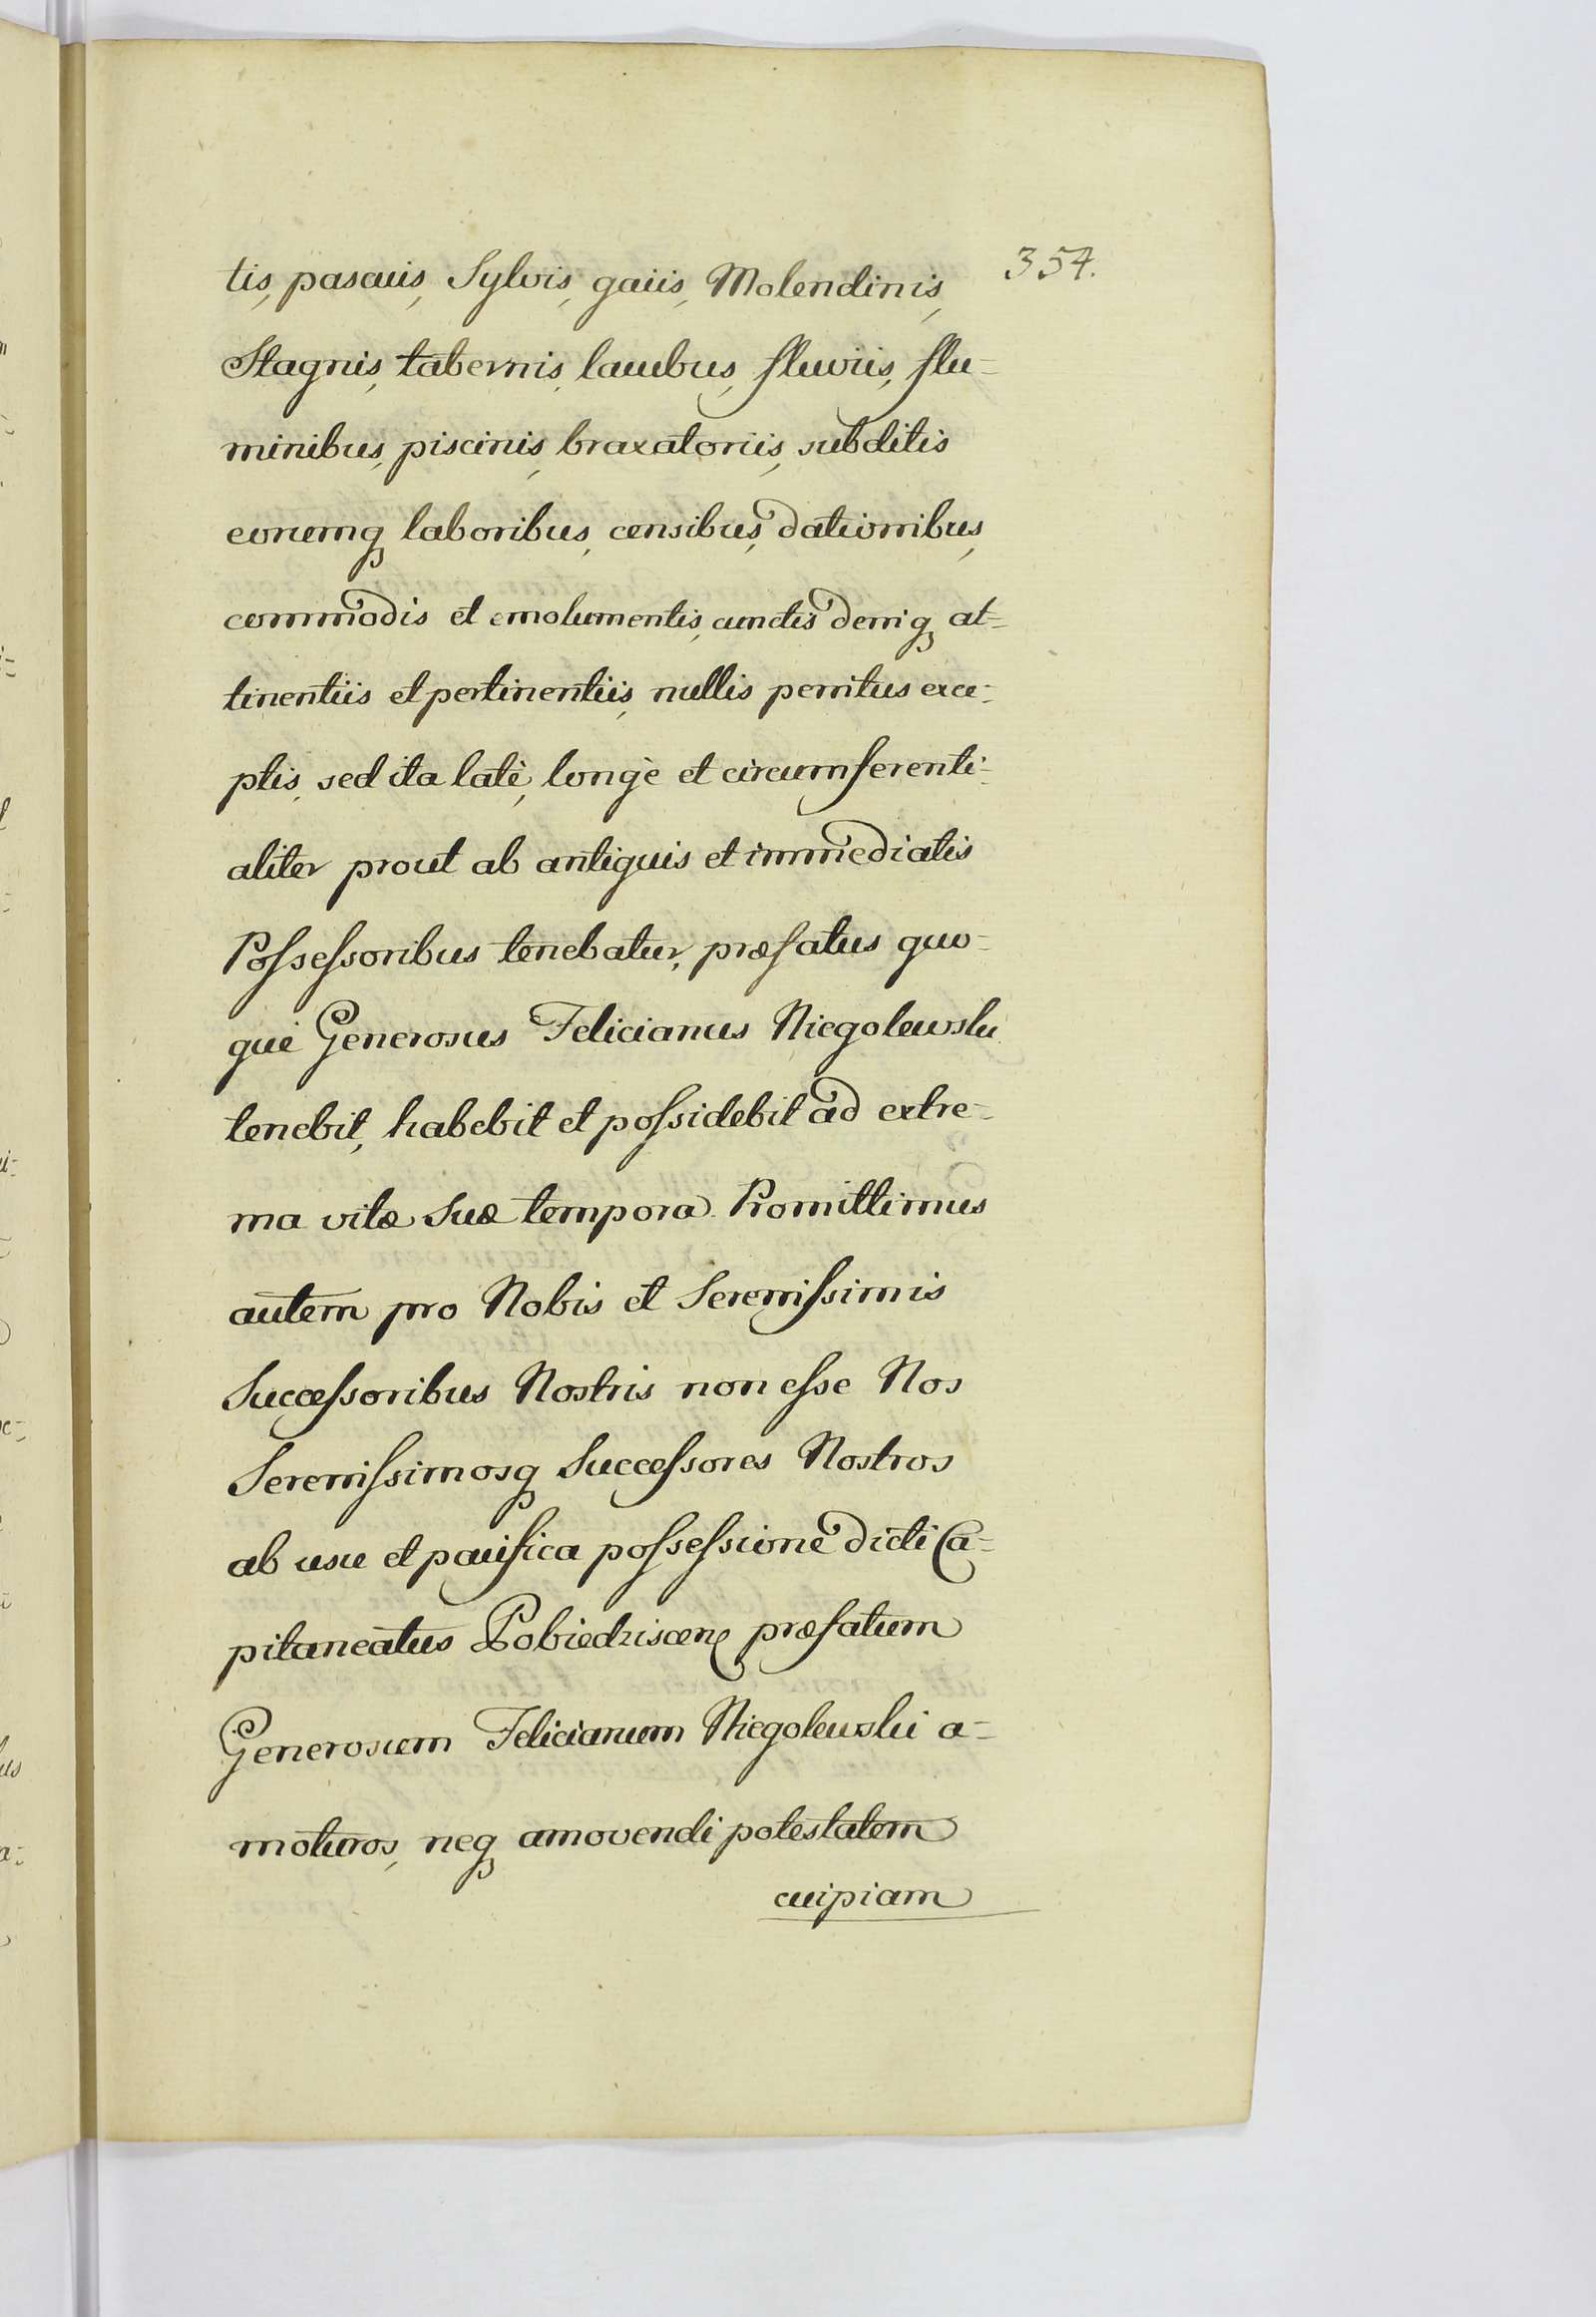 354.
tis, pascuis, Sylvis, gaiis, Molendinis,
Stagnis, tabernis, lacubus, fluviis, flu-
minibus, piscinis, braxatoriis, subditis
eorumq; laboribus, censibus, dationibus,
commodis et emolumentis, cunctis deniq; at-
tinentiis et pertinentiis, nullis penitus exce-
ptis, sed ita latè, longè et circumferenti-
aliter prout ab antiquis et immediatis
Possessoribus tenebatur, præfatus quo-
que Generosus Felicianus Niegolewski
tenebit, habebit et possidebit ad extre-
ma vitæ suæ tempora. Promittimus
autem pro Nobis et Serenissimis
Successoribus Nostris non esse Nos
Serenissimosq; Successores Nostros
ab usu et pacifica possessione dicti Ca-
pitaneatus Pobiedziscen. præfatum
Generosum Felicianum Niegolewski a-
moturos, neq; amovendi potestatem
cuipiam